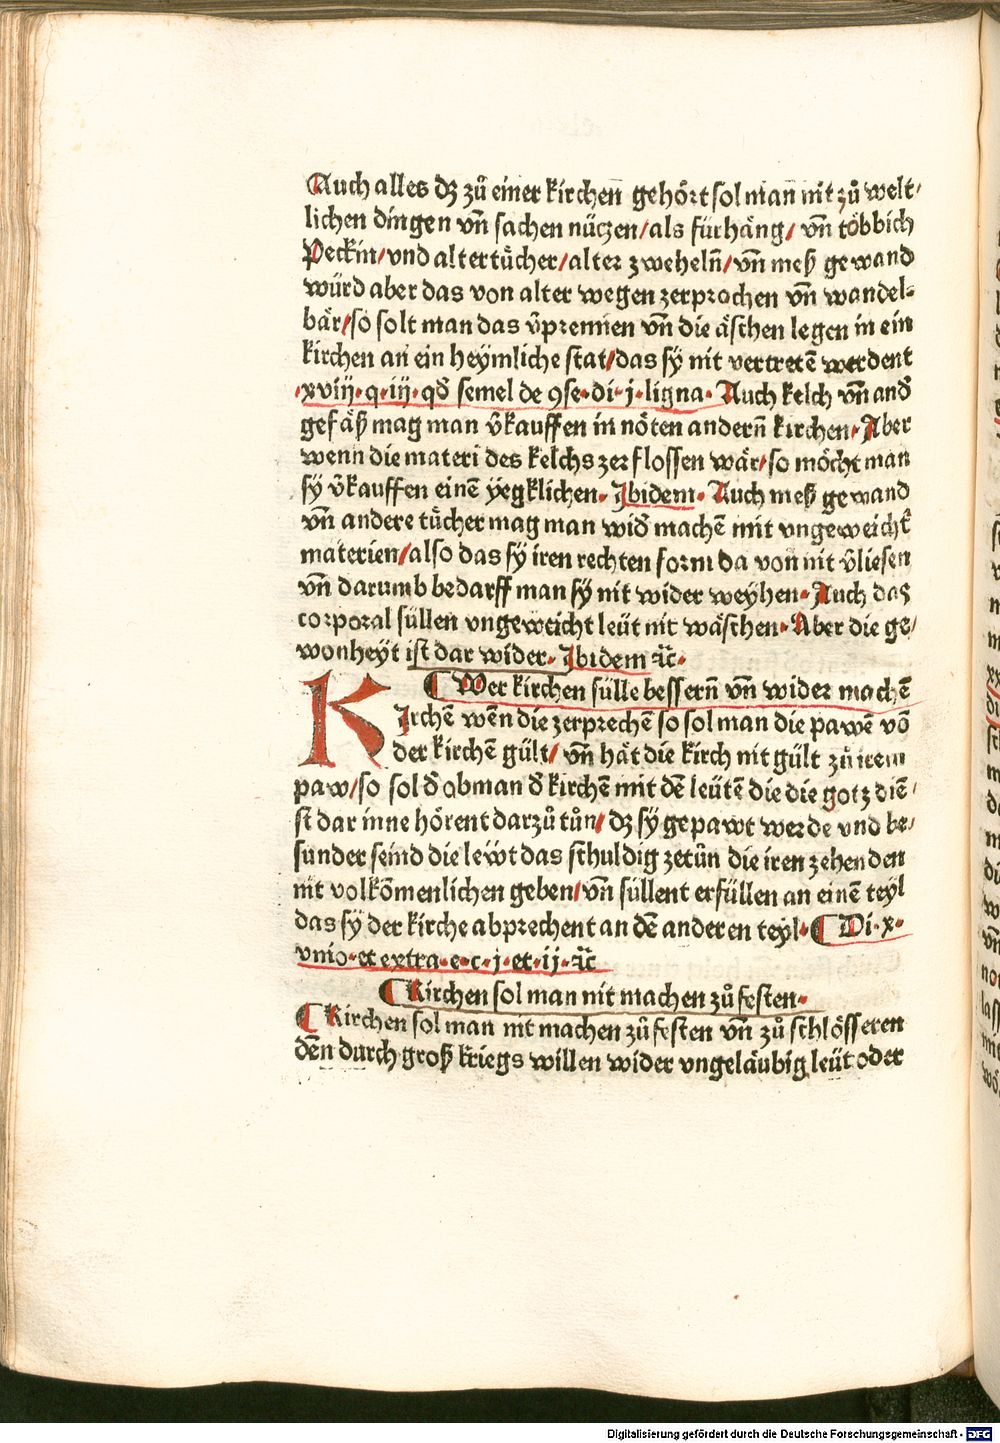 Auch alles dz zuͦ einer kirchen gehoͤrt sol man nit zuͦ welt/
lichen dingen vñ sachen nüczen/als fürhaͤng/ vñ toͤbbich
Peckin/vnd altertuͤcher/alter zwehelñ/vñ meß gewand
würd aber das von alter wegen zerprochen vñ wandel⸗
baͤr/so solt man das v̄prennen vñ die aͤschen legen in ein
kirchen an ein heymliche stat/das sy nit vertretē werdent
·xviij·q·iij·qđ semel de ꝯse·di·j·ligna· Auch kelch vñ and̄
gefaͤß mag man v̄kauffen in noͤten anderñ kirchen· Aber
wenn die materi des kelchs zerflossen waͤr/so moͤcht man
sy v̄kauffen einē yegklichen· Jbidem· Auch meß gewand
vñ andere tuͤcher mag man wid̄ machē mit vngeweicht̄
materien/also das sy iren rechten form da von nit v̄liesen
vñ darumb bedarff man sy nit wider weyhen· Auch das
corporal süllen vngeweicht leüt nit waͤschen· Aber die ge/
wonheyt ist dar wider· Jbidem ꝛc̄·
¶ Wer kirchen sülle besserñ vñ wider machē
KJrchē wēn die zerprechē so sol man die pawē vō
der kirchē gült/ vñ haͤt die kirch nit gült zuͦ irem
paw/so sol d̄ obman d̄ kirchē mit dē leütē die die gotz diē/
st dar inne hoͤrent darzuͦ tuͦn/ dz sy gepawt werde vnd be/
sunder seind die lewt das schuldig zetuͦn die iren zehenden
nit volkōmenlichen geben/vñ süllent erfüllen an einē teyl
das sy der kirche abprechent an dē anderen teyl·¶ Di·x·
vnio·et extra·e·c·j·et·ij·ꝛc̄
¶ Kirchen sol man nit machen zuͦ festen·
¶ Kirchen sol man nit machen zuͦ festen vñ zuͦ schloͤsseren
dēn durch groß kriegs willen wider vngelaͤubig leüt oder
Digitalisierung gefördert durch die Deutsche Forschungsgemeinschaft - DFG